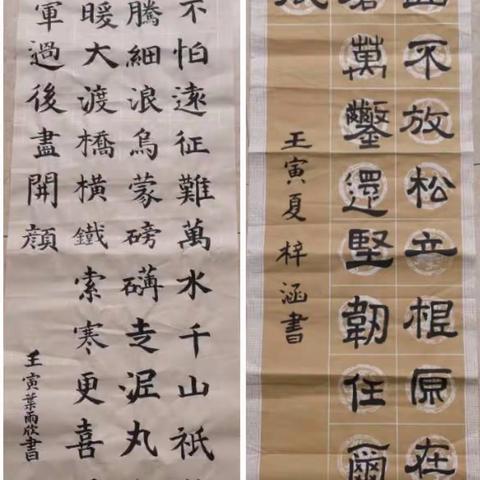 不怕遠征難萬水千山祇
騰細浪烏蒙磅礴走泥丸
暖大渡橋橫鐵索寒更喜
軍過後盡開顏
壬寅葉雨欣書
不放松立根原在
萬擊還堅韌任爾
壬寅夏梓涵書